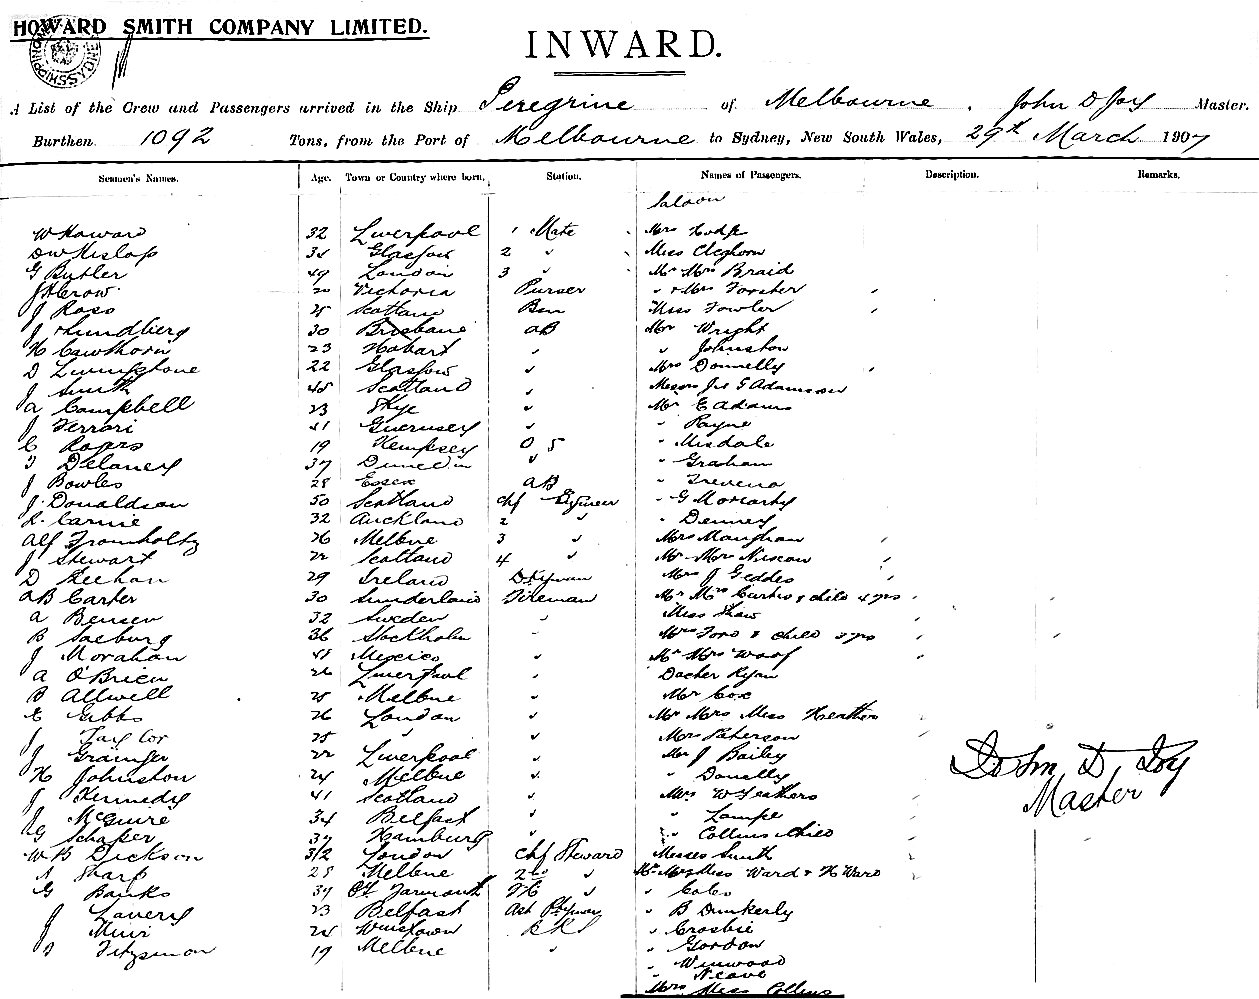 HOWARD SMITH COMPANY LIMITED.
INWARD.
A List of the Crew and Passengers arrived in the Ship Peregrine of Melbourne, John D Joy Master.
Burthen 1092 Tons, from the Port of Melbourne to Sydney, New South Wales, 29th March 1907
Seamen's Names. Age. Town or Country where born. Station. Names of Passengers. Description. Remarks.
Saloon
W Howard 32 Liverpool 1 Mate Mrs Hodge
DW Hislop Glasgow 2 " Miss Cleghorn
G Butler 49 London 3 " Mr Mrs Braid
Victoria Purser " & Mrs Forster
J Ross Scotland Miss Fowler
J Lundberg 30 Brisbane AB Mr Wright
H Cawthorn 23 Hobart " " Johnston
D Livingstone 22 Glasgow " Mrs Donnelly
J Smith 48 Scotland " Messrs J & G Adamson
A Campbell 23 Skye " Mr E Adams
J Ferrari 41 Guernsey " " Payne
C Rogers 19 Kempsey O S " Misdale
Delaney 37 Dunedin " " Graham
J Bowles 28 Essex AB " Trevena
J. Donaldson 50 Scotland Chf Engineer " G Moriarty
R. Carnie 32 Auckland 2 " " Denney
Alf Fromholtz 26 Melbne 3 " Mrs Maughan
J Stewart 22 Scotland 4 " Mr Mrs
D Keehan 29 Ireland Dkyman Mrs J Geddes
AB Carter 30 Sunderland Fireman Mr Mrs Curtis & child 4 yrs
A Bensen 32 Sweden " Miss Shaw
B Saeburg 36 Stockholm " Mrs Ford & child 3 yrs
J Morahan 48 Mexico " Mr Mrs Woof
A O'Brien 26 Liverpool " Ryan
B Allwell 25 Melbne " Mr Cox
E Gibbs 26 London " Mr Mrs Miss Heathers
J Taylor 25 " " Mrs Paterson
J Grainger 22 Liverpool " Mr J Bailey
H Johnston 24 Melbne " " Donelly
J Kennedy 41 Scotland " Mrs W Feathers
J McGuire 34 Belfast " " Lampe
G Schafer 37 Hamburg " " Collins child
W B Dickson 32 London Chf Steward Misses Smith
A Sharp 28 Melbne 2nd " Mr Mrs Miss Ward & H Ward
G Banks 34 Gt Yarmouth " " Coles
J Lavery 23 Belfast " B Dunkerly
J Muir 24 " Crosbie
Fitzsimon 19 Melbne " " Gordon
" Winwood
" Neave
Mrs Miss Collins
John D. Joy
Master